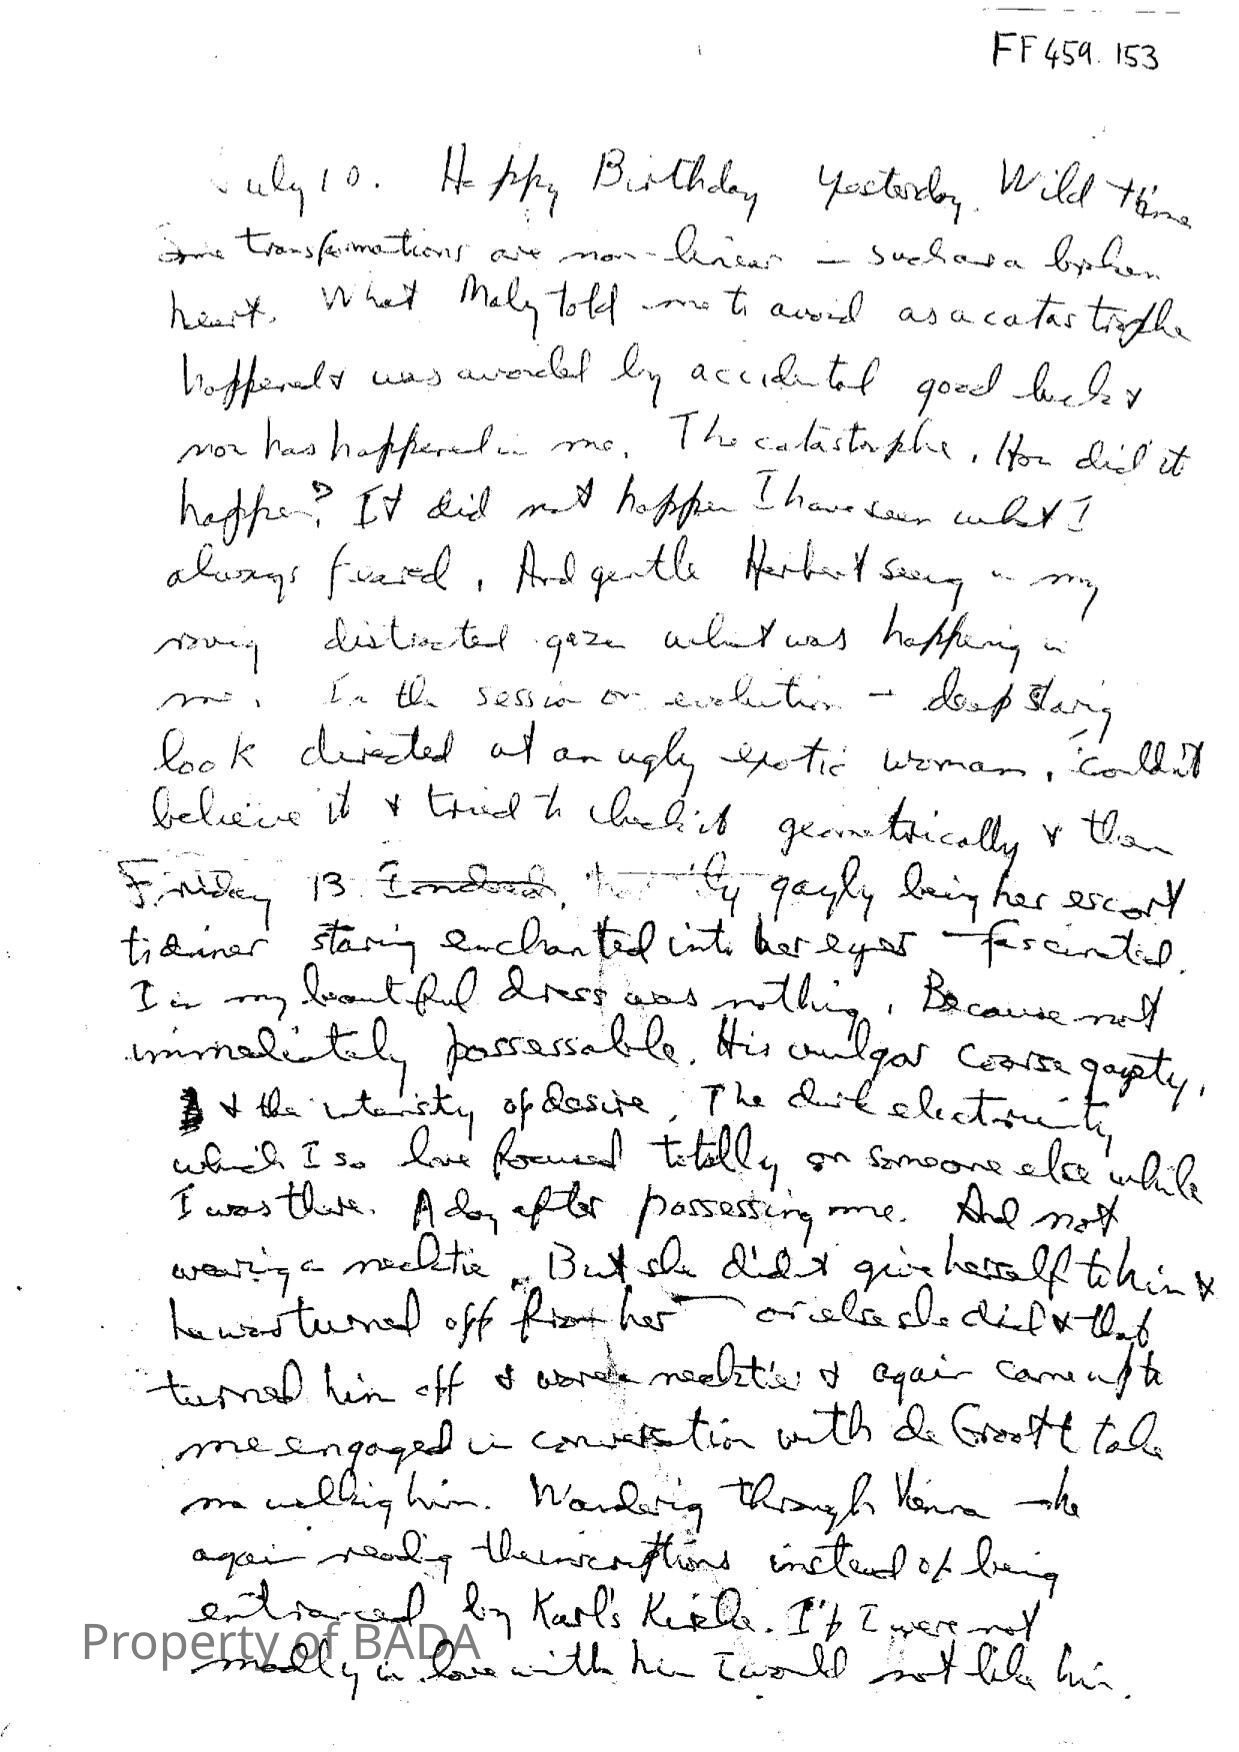 FF 459. 153
July 10. Happy Birthday yesterday. Wild time
Some transformations are non-linear – such as a broken
heart. What Maly told me to avoid as a catastrophe
happened & was avoided by accidental good luck &
now has happened in me. The catastrophe. How did it
happen? It did not happen I have seen what I
always feared. And gentle Herbert seeing in my
roving distracted gaze what was happening in
me. In the session on evolution – deep staring
look directed at an ugly exotic woman, couldn't
believe it & tried to check it geometrically & then
Friday 13 Indeed, gayly being her escort
to dinner staring enchanted into her eyes – fascinated.
I in my beautiful dress was nothing. Because not
immediately possessable. His vulgar coarse gayety,
& the intensity of desire. The dark electricity
which I so love focused totally on someone else while
I was there. A day after possessing me. And not
wearing a necktie. But she didn't give herself to him &
he was turned off from her – or else she did & that
turned him off & wore a necktie & again came up to
me engaged in conversation with de Groot to take
me walking him. Wandering through Vienna – he
again reading the inscriptions instead of being
entranced by Karl's Kirche. If I were not
madly in love with him I would not like him.
Property of BADA